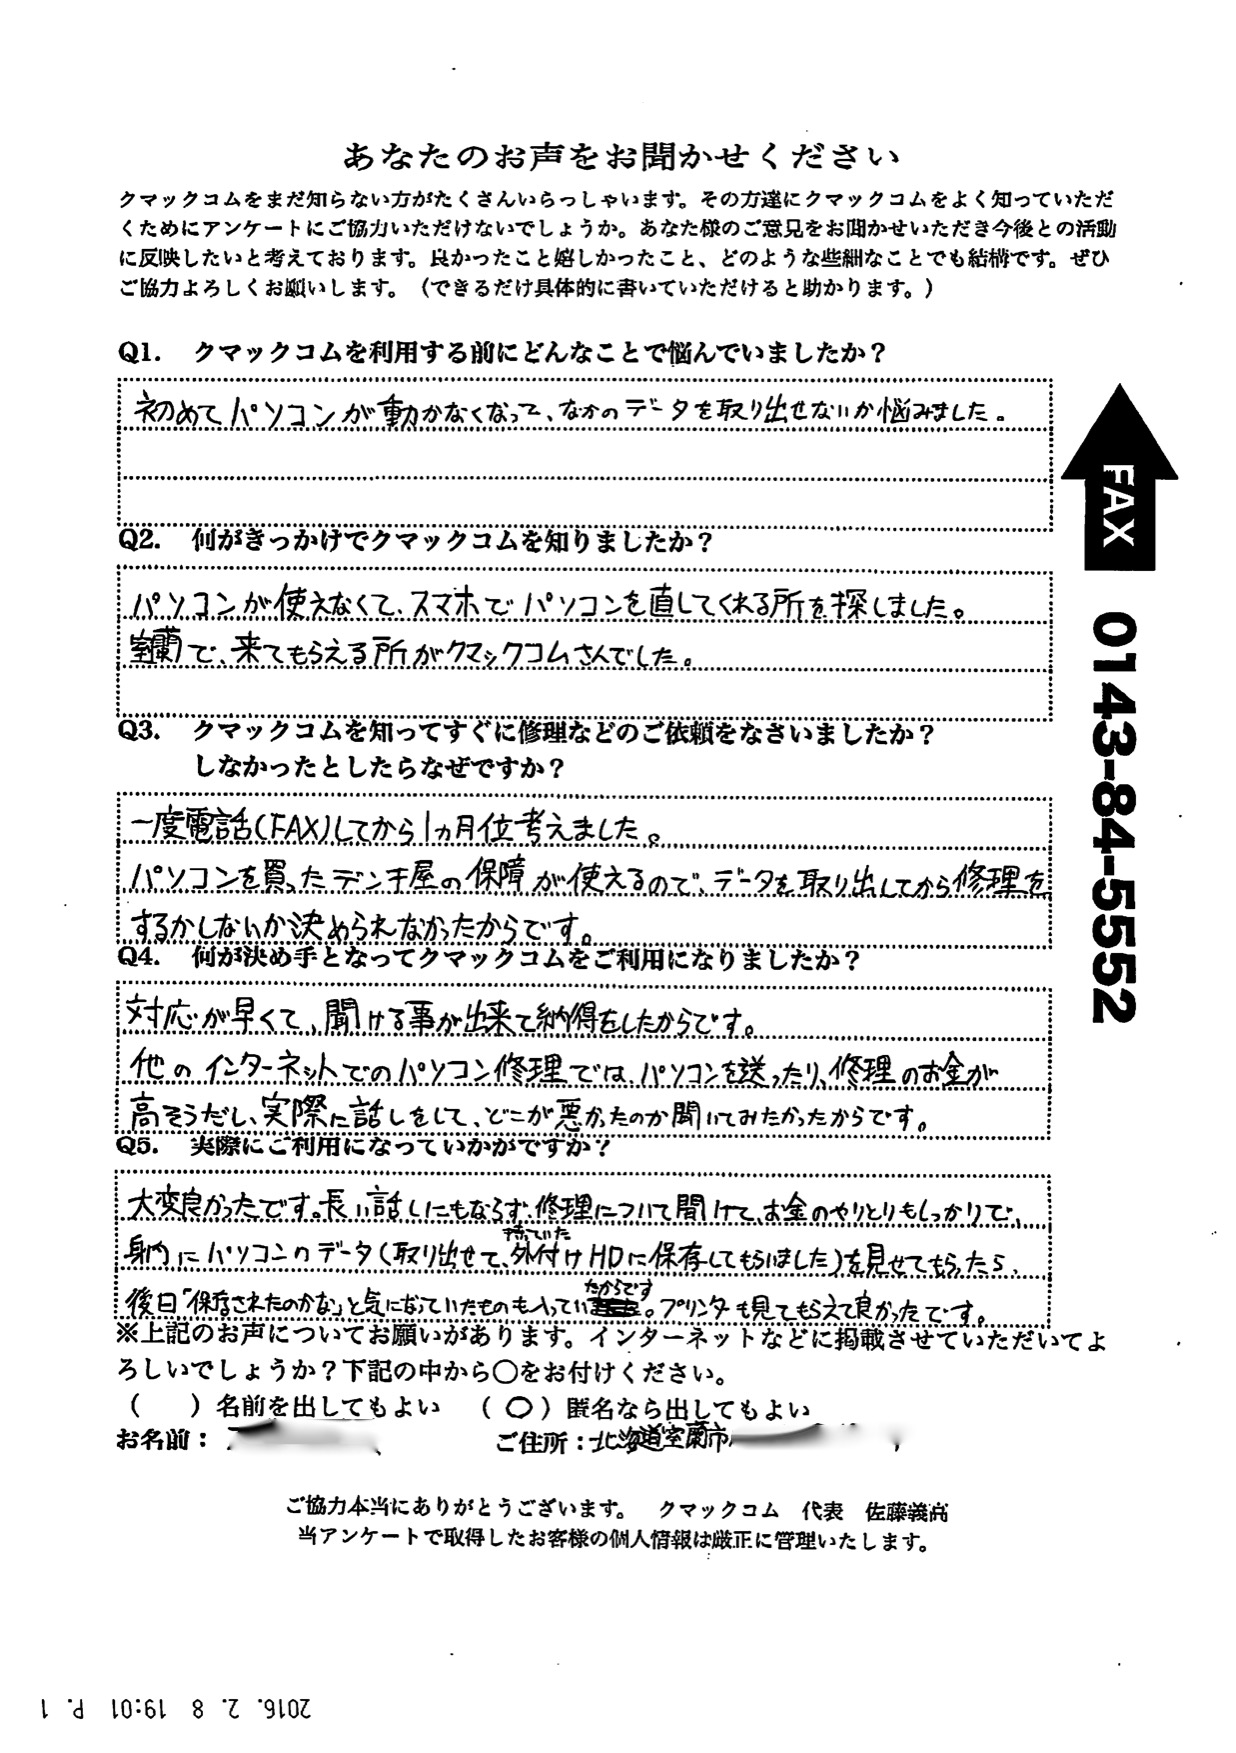 あなたのお声をお聞かせください
クマックコムをまだ知らない方がたくさんいらっしゃいます。その方達にクマックコムをよく知っていただ
くためにアンケートにご協力いただけないでしょうか。あなた様のご意見をお聞かせいただき今後との活動
に反映したいと考えております。良かったこと嬉しかったこと、どのような些細なことでも結構です。ぜひ
ご協力よろしくお願いします。（できるだけ具体的に書いていただけると助かります。）
Q1. クマックコムを利用する前にどんなことで悩んでいましたか？
初めてパソコンが動かなくなって、なかのデータを取り出せないか悩みました。
Q2. 何がきっかけでクマックコムを知りましたか？
パソコンが使えなくて、スマホでパソコンを直してくれる所を探しました。
室蘭で、来てもらえる所がクマックコムさんでした。
Q3. クマックコムを知ってすぐに修理などのご依頼をなさいましたか？
しなかったとしたらなぜですか？
一度電話（FAX）してから1ヵ月位考えました。
パソコンを買ったデンキ屋の保障が使えるので、データを取り出してから修理を
するかしないか決められなかったからです。
Q4. 何が決め手となってクマックコムをご利用になりましたか？
対応が早くて、聞ける事が出来て納得をしたからです。
他のインターネットでのパソコン修理では、パソコンを送ったり、修理のお金が
高そうだし、実際に話しをして、どこが悪かったのか聞いてみたかったからです。
Q5. 実際にご利用になっていかがですか？
大変良かったです。長い話しにもならず、修理について聞けて、お金のやりとりもしっかりで、
身内にパソコンのデータ（取り出せて、持っていた外付けHDに保存してもらいました）を見せてもらったら、
後日「保存されたのかな」と気になっていたものも入っていたからです。プリンタも見てもらえて良かったです。
※上記のお声についてお願いがあります。インターネットなどに掲載させていただいてよ
ろしいでしょうか？下記の中から〇をお付けください。
（　）名前を出してもよい　（〇）匿名なら出してもよい
お名前：　ご住所：北海道室蘭市
ご協力本当にありがとうございます。　クマックコム　代表　佐藤義高
当アンケートで取得したお客様の個人情報は厳正に管理いたします。
FAX 0143-84-5552
2016. 2. 8 19:01 P. 1